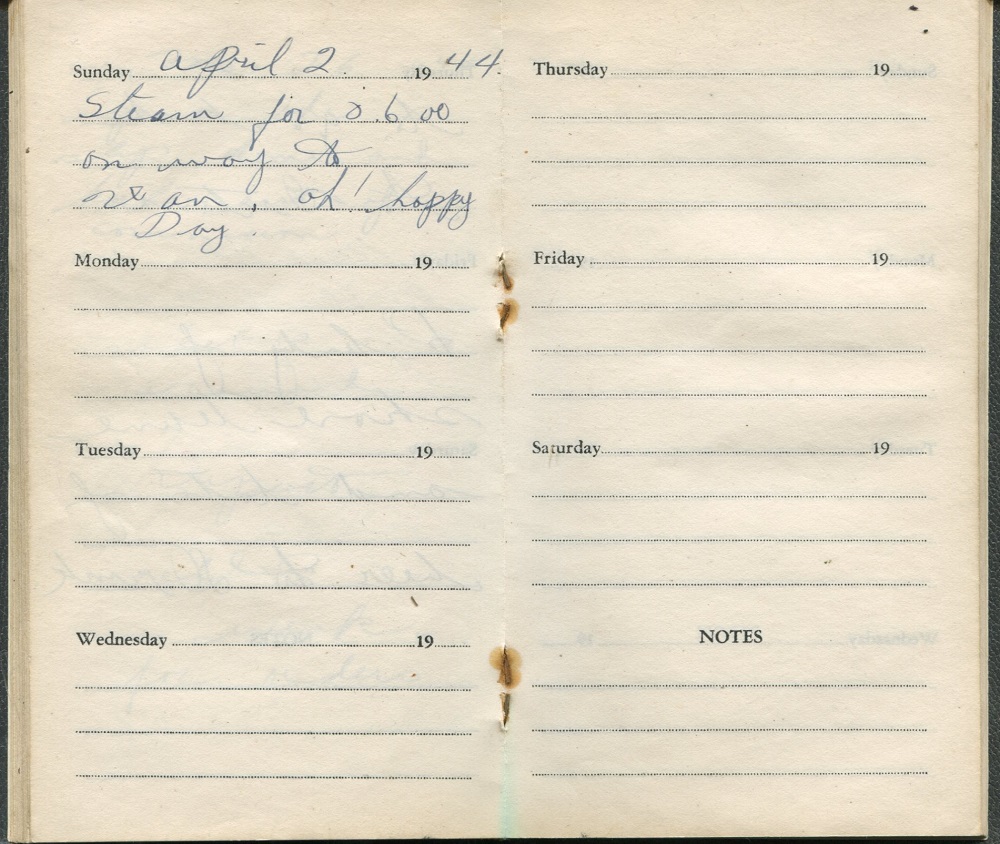 Sunday April 2 1944
Steam for 0600
on way to
oh! happy
Day.
Monday 19
Tuesday 19
Wednesday 19
Thursday 19
Friday 19
Saturday 19
NOTES